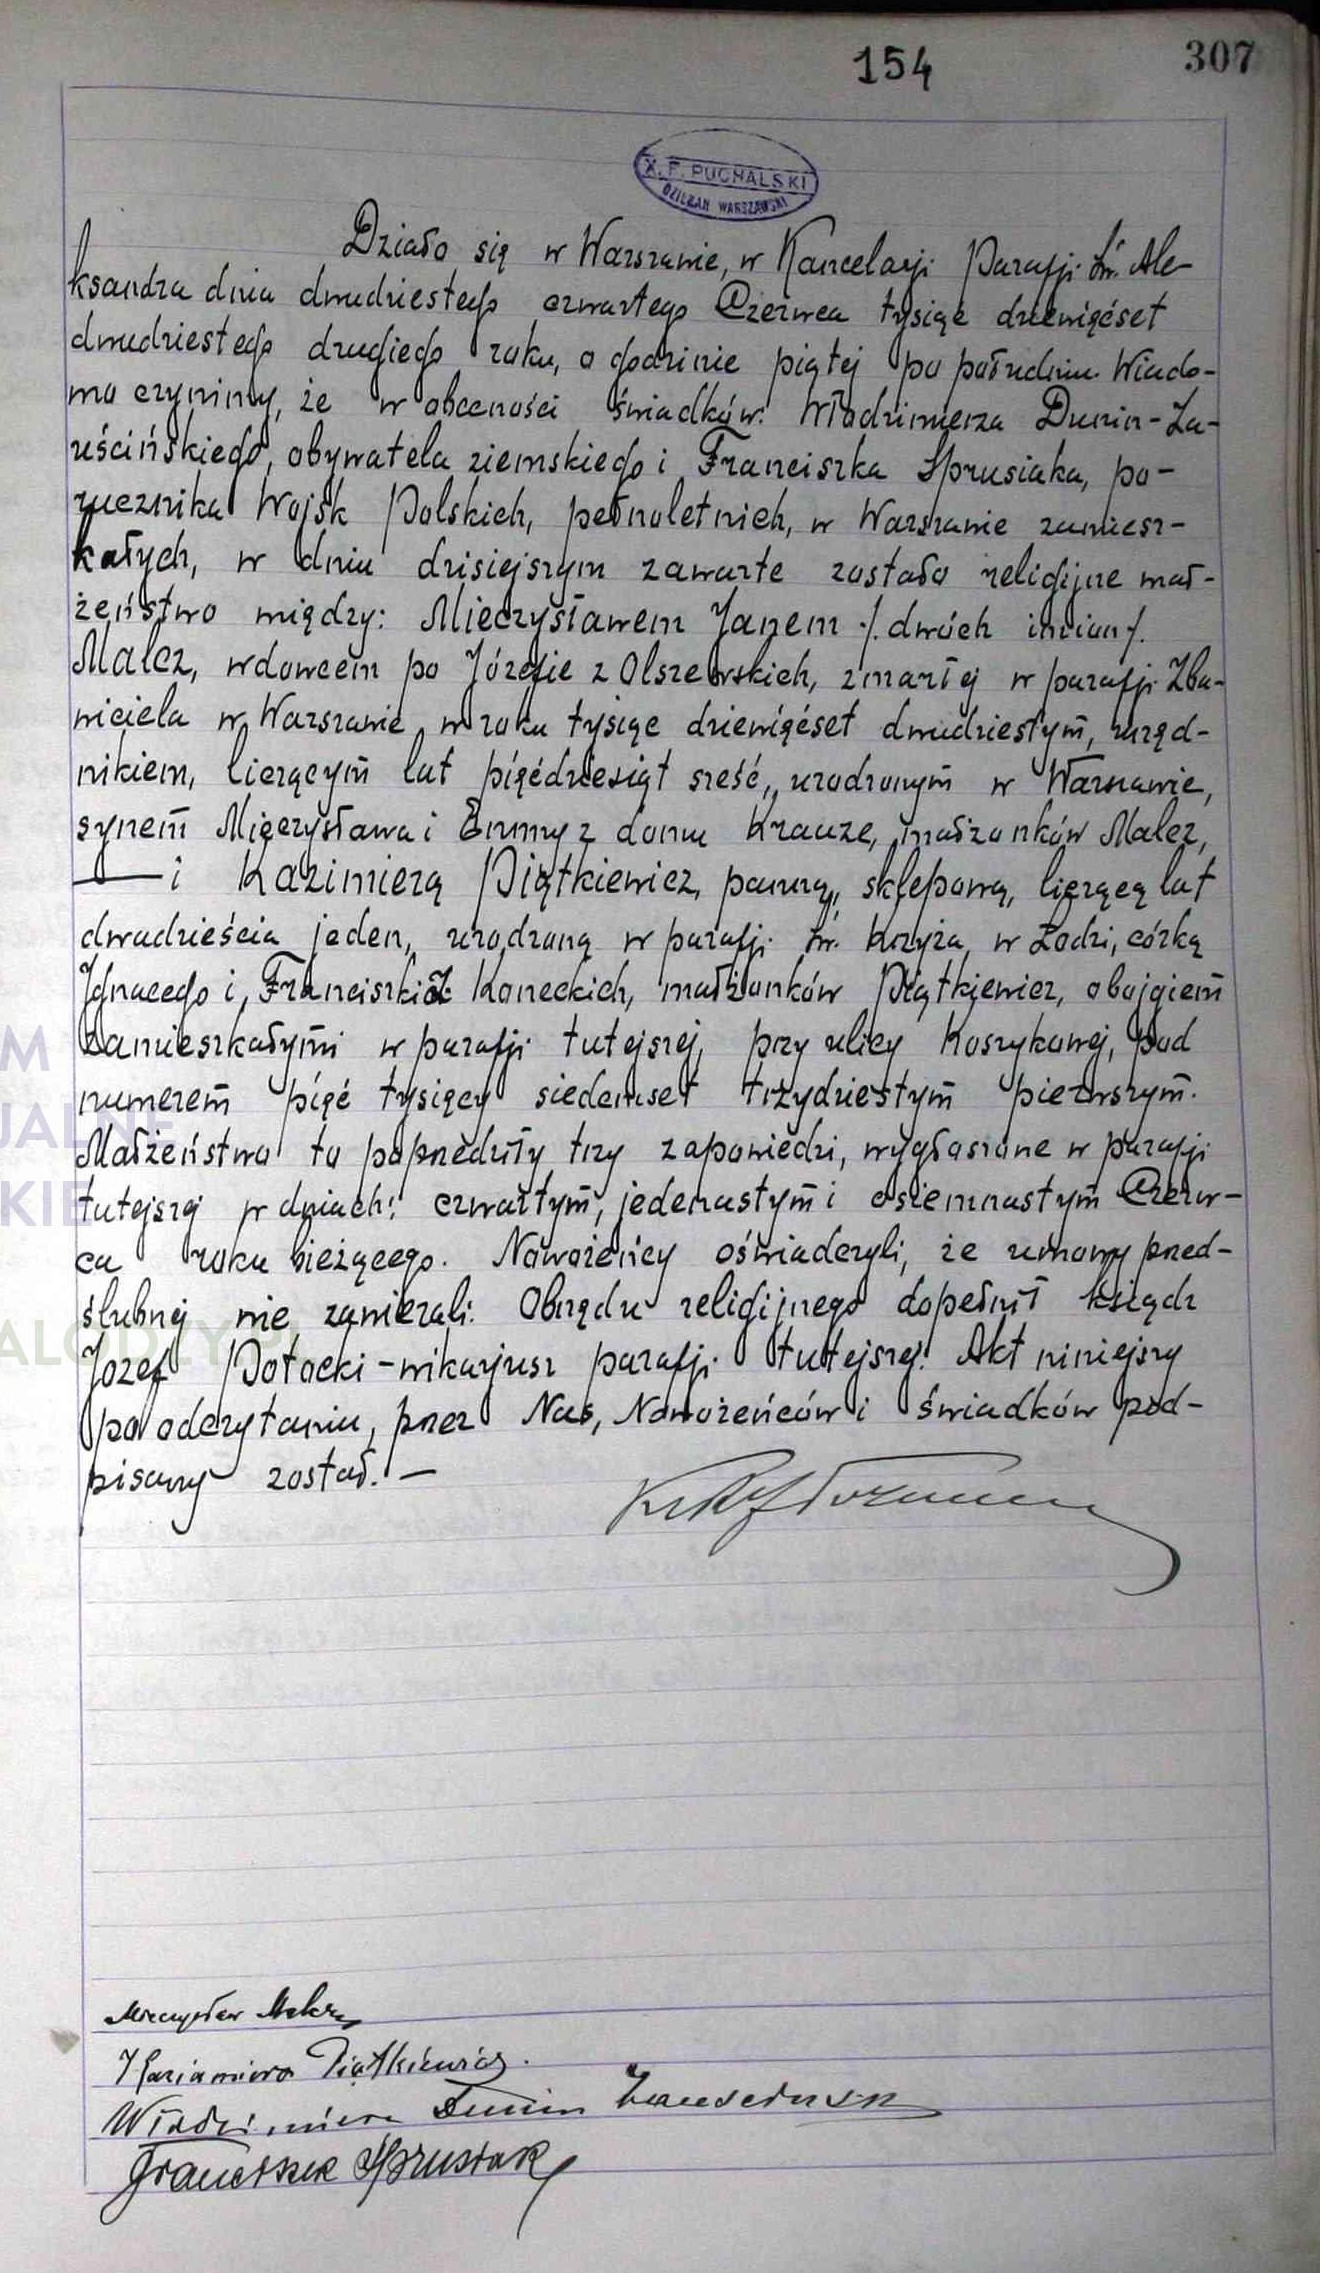 154
307
X. F. PUCHALSKI
DZIEKAN WARSZAWSKI
Działo się w Warszawie, w Kancelarji Parafji Św. Ale-
ksandra dnia dwudziestego czwartego Czerwca tysiąc dziewięćset
dwudziestego drugiego roku, o godzinie piątej po południu. Wiado-
mo czynimy, że w obecności świadków: Włodzimierza Dunin-Za-
uścińskiego, obywatela ziemskiego i Franciszka Sprusiaka, po-
rucznika Wojsk Polskich, pełnoletnich, w Warszawie zamiesz-
kałych, w dniu dzisiejszym zawarte zostało religijne mał-
żeństwo między: Mieczysławem Janem /. dwóch imion /.
Malcz, wdowcem po Józefie z Olszewskich, zmarłej w parafji Zba-
wiciela w Warszawie w roku tysiąc dziewięćset dwudziestym, urzęd-
nikiem, liczącym lat pięćdziesiąt sześć, urodzonym w Warszawie,
synem Mieczysława i Emmy z domu Krauze, małżonków Malcz,
— i Kazimierą Piątkiewicz, panną, sklepową, liczącą lat
dwadzieścia jeden, urodzoną w parafji Św. Krzyża w Łodzi, córką
Ignacego i Franciszki z Koneckich, małżonków Piątkiewicz, obojgiem
zamieszkałymi w parafji tutejszej, przy ulicy Koszykowej, pod
numerem pięć tysięcy siedemset trzydziestym pierwszym.
Małżeństwo to poprzedziły trzy zapowiedzi, wygłoszone w parafji
tutejszej w dniach: czwartym, jedenastym i osiemnastym Czerw-
ca roku bieżącego. Nowożeńcy oświadczyli, że umowy przed-
ślubnej nie zawierali. Obrzędu religijnego dopełnił ksiądz
Józef Potocki - wikarjusz parafji tutejszej. Akt niniejszy
po odczytaniu, przez Nas, Nowożeńców i świadków pod-
pisany został. —
Mieczysław Malcz
Kazimiera Piątkiewicz.
Włodzimierz Dunin
Franciszek Sprusiak
M
JALNE
KIE